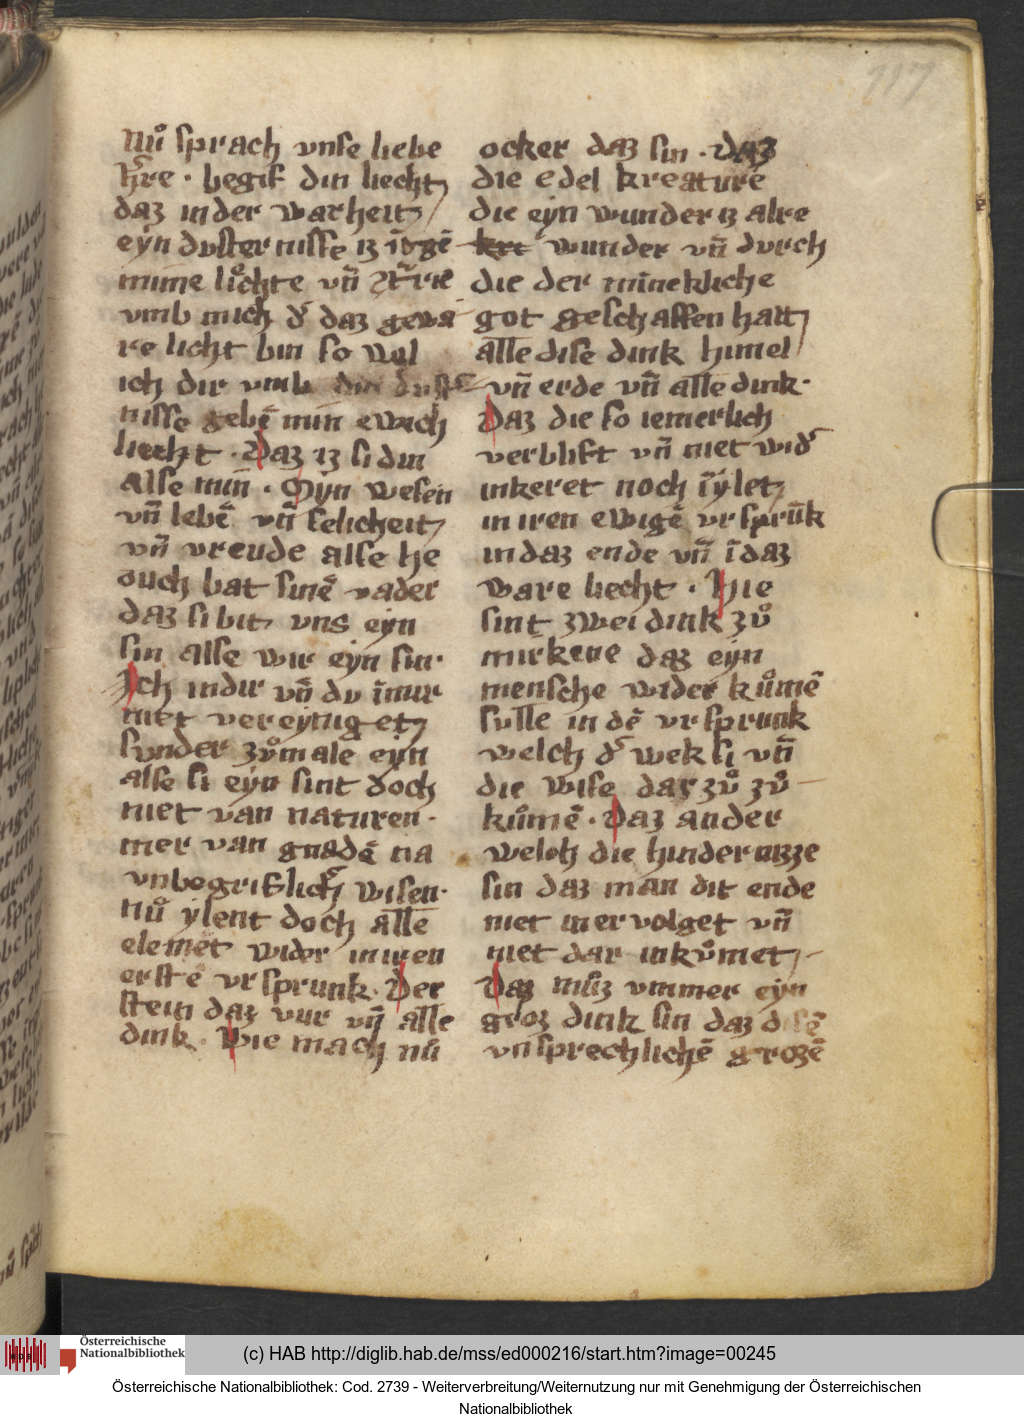 117
Nuͦ sprach vnse liebe
h're · begif din liecht
daz in der warheit
eyn dvster nisse iz ī gē
mime luͦchte vn̄
vmb mich d' daz gewa
re licht bin so wel
ich dir vmb din dust'
nisse gebē min ewich
liecht · Daz iz si din
alse min̄ · Myn wesen
vn̄ lebē vn̄ selicheit
vn̄ vreude alse he
ouch bat sinē vader
daz si bit vns eyn
sin alse wir eyn sin·
Ich in dir vn̄ dv ī mir
niet vereyniget
sunder zuͦmale eyn
alse si eyn sint doch
niet van naturen·
mer van gnadē na
vnbegriflich' wisen·
Nuͦ ylent doch alle
elemēt wider in iren
erstē vrsprunk· Der
stein daz vur vn̄ alle
dink· Wie mach nuͦ
ocker daz sin · daz
die edel kreature
die eyn wunder iz alre
wunder vn̄ durch
die der minekliche
got geschaffen hait
alle dise dink himel
vn̄ erde vn̄ alle dink·
Daz die so iemerlich
verblift vn̄ niet wid'
inkeret noch īylet
in iren ewigē vrsprūk
in daz ende vn̄ ī daz
ware liecht · Hie
sint zwei dink zuͦ
mirkene daz eyn
mensche wider kuͦmē
sulle in dē vrsprunk
welch d' wek si vn̄
die wise dar zuͦ zuͦ
kuͦmē · Daz ander
welch die hindernizze
sin daz man dit ende
niet in ervolget vn̄
niet dar inkuͦmet
Daz muͦz vmmer eyn
groz dink sin daz disē
vnsprechlichē grozē
(c) HAB http://diglib.hab.de/mss/ed000216/start.htm?image=00245
Österreichische
Nationalbibliothek
Österreichische Nationalbibliothek: Cod. 2739 - Weiterverbreitung/Weiternutzung nur mit Genehmigung der Österreichischen
Nationalbibliothek